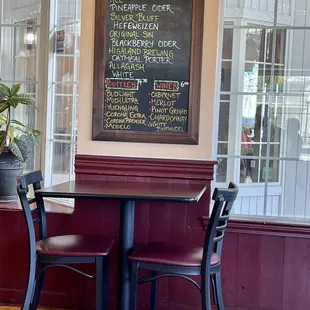 PINEAPPLE CIDER
SILVER BLUFF
HEFEWEIZEN
ORIGINAL SIN
BLACKBERRY CIDER
HIGHLAND BREWING
OATMEAL PORTER
ALLAGASH
WHITE
BOTTLES
BUD LIGHT
MICH ULTRA
YUENGLING
CORONA EXTRA
CORONA PREMIER
MODELO
WINES
• CABERNET
• MERLOT
• PINOT GRIGIO
• CHARDONNAY
• WHITE
ZINFANDEL